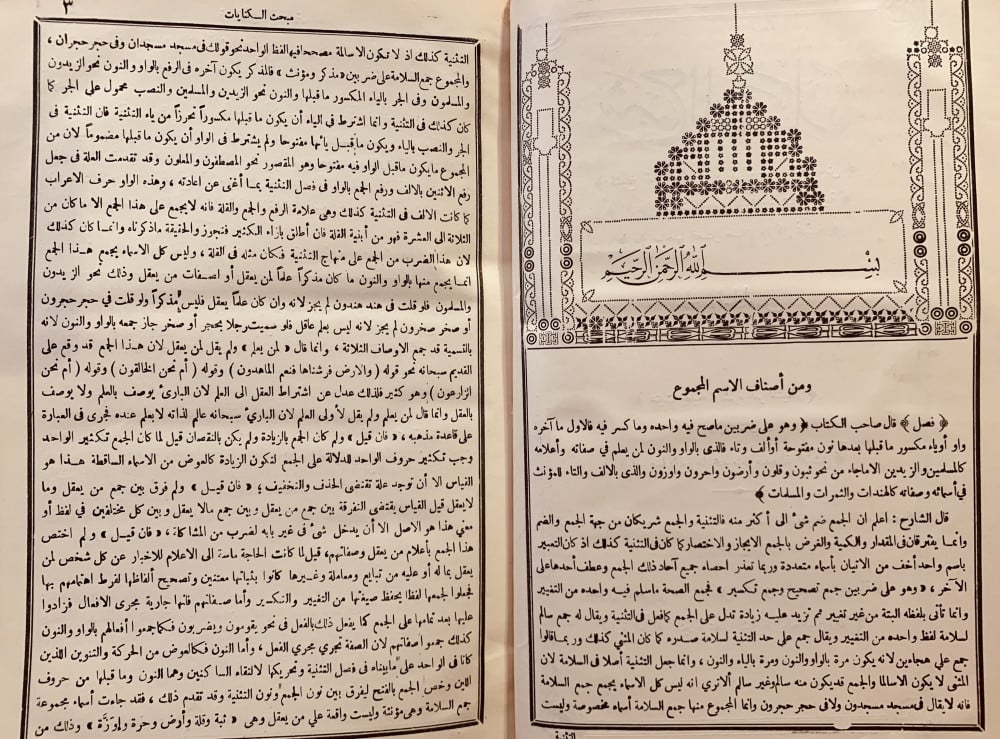 بسم الله الرحمن الرحيم
ومن أصناف الاسم المجموع
﴿ فصل ﴾ قال صاحب الكتاب ﴿ وهو على ضربين ما صح فيه واحده وما كسر فيه فالاول ما آخره
واو أو ياء مكسور ما قبلها بعدها نون مفتوحة أو ألف وتاء فالذى بالواو والنون لمن يعلم في صفاته وأعلامه
كالمسلمين والزيدين الا ما جاء من نحو ثبون وقلون وأرضون واحرون واوزون والذى بالالف والتاء للمؤنث
في أسمائه وصفاته كالهندات والثمرات والمسلمات ﴾
قال الشارح : اعلم ان الجمع ضم شئ الى أكثر منه فالتثنية والجمع شريكان من جهة الجمع والضم
وانما يفترقان في المقدار والكمية والغرض بالجمع الايجاز والاختصار كما كان في التثنية كذلك اذ كان التعبير
باسم واحد أخف من الاتيان بأسماء متعددة وربما تعذر احصاء جميع آحاد ذلك الجمع وعطف أحدها على
الآخر ، « وهو على ضربين جمع تصحيح وجمع تكسير » فجمع الصحة ما سلم فيه واحده من التغيير
وانما تأتى بلفظه البتة من غير تغيير ثم تزيد عليه زيادة تدل على الجمع كما فعل في التثنية ويقال له جمع سالم
لسلامة لفظ واحده من التغيير ويقال جمع على حد التثنية لسلامة صدره كما كان المثني كذلك وربما قالوا
جمع على هجاءين لانه يكون مرة بالواو والنون ومرة بالياء والنون ، وانما جعل التثنية أصلا فى السلامة لان
المثنى لا يكون الا سالما والجمع قد يكون منه سالم وغير سالم ألا ترى انه ليس كل الاسماء يجمع جمع السلامة
فانه لا يقال في مسجد مسجدون ولا في حجر حجرون وانما المجموع منها جمع السلامة أسماء مخصوصة وليست
التثنية
مبحث الكنايات
٣
التثنية كذلك اذ لا تكون الا سالمة مصححا فيها لفظ الواحد نحو قولك في مسجد مسجدان وفى حجر حجران ،
والمجموع جمع السلامة على ضربين « مذكر ومؤنث » فالمذكر يكون آخره فى الرفع بالواو والنون نحو الزيدون
والمسلمون وفى الجر بالياء المكسور ما قبلها والنون نحو الزيدين والمسلمين والنصب محمول على الجر كما
كان كذلك فى التثنية وانما اشترط فى الياء أن يكون ما قبلها مكسوراً تحرزاً من ياء التثنية فان التثنية فى
الجر والنصب بالياء ويكون ما قبل يائها مفتوحا ولم يشترط فى الواو أن يكون ما قبلها مضموماً لان من
المجموع ما يكون ما قبل الواو فيه مفتوحا وهو المقصور نحو المصطفون والمعلون وقد تقدمت العلة فى جعل
رفع الاثنين بالالف ورفع الجمع بالواو فى فصل التثنية بما أغنى عن اعادته ، وهذه الواو حرف الاعراب
كما كانت الالف فى التثنية كذلك وهى علامة الرفع والجمع والقلة فانه لا يجمع على هذا الجمع الا ما كان من
الثلاثة الى العشرة فهو من أبنية القلة فان أطلق بازاء الكثير فتجوز والحقيقة ما ذكرناه وانما كان كذلك
لان هذا الضرب من الجمع على منهاج التثنية فكان مثله فى القلة ، وليس كل الاسماء يجمع هذا الجمع
انما يجمع منها بالواو والنون ما كان مذكراً علماً لمن يعقل أو لصفات من يعقل وذلك نحو الزيدون
والمسلمون فلو قلت فى هند هندون لم يجز لانه وان كان علماً يعقل فليس مذكراً ولو قلت فى حجر حجرون
أو صخر صخرون لم يجز لانه ليس بعلم عاقل فلو سميت رجلا بحجر أو صخر جاز جمعه بالواو والنون لانه
بالتسمية قد جمع الاوصاف الثلاثة ، وانما قال « لمن يعلم » ولم يقل لمن يعقل لان هذا الجمع قد وقع على
القديم سبحانه نحو قوله ( والارض فرشناها فنعم الماهدون ) وقوله ( أم نحن الخالقون ) وقوله ( أم نحن
الزارعون ) وهو كثير فلذلك عدل عن اشتراط العقل الى العلم لان البارئ يوصف بالعلم ولا يوصف
بالعقل وانما قال لمن يعلم ولم يقل لأولى العلم لان البارئ سبحانه عالم لذاته لا بعلم عنده فجرى فى العبارة
على قاعدة مذهبه ، « فان قيل » ولم كان الجمع بالزيادة ولم يكن بالنقصان قيل لما كان الجمع تكثير الواحد
وجب تكثير حروف الواحد للدلالة على الجمع لتكون الزيادة كالعوض من الاسماء الساقطة هذا هو
القياس الا أن توجد علة تقتضى الحذف والتخفيف ، « فان قيل » ولم فرق بين جمع من يعقل وما
لا يعقل قيل القياس يقتضى التفرقة بين جمع من يعقل وبين جمع مالا يعقل وبين كل مختلفين فى لفظ أو
معني هذا هو الاصل الا أن يدخل شئ فى غير بابه لضرب من المشاكلة ، « فان قيل » ولم اختص
هذا الجمع بأعلام من يعقل وصفاتهم ، قيل لما كانت الحاجة ماسة الى الاعلام للاخبار عن كل شخص لمن
يعقل بما له أو عليه من تبايع ومعاملة وغيرها كانوا بثباتها معتنين وتصحيح ألفاظها لفرط اهتمامهم بها
فجعلوا لجمعها لفظا يحفظ صيغتها من التغيير والتكسير وأما صفاتهم فانها جارية مجرى الافعال فزادوا
عليها بعد تمامها على الجمع كما يفعل ذلك بالفعل فى نحو يقومون ويضربون فكما جمعوا أفعالهم بالواو والنون
كذلك جمعوا صفاتهم لان الصفة تجري مجري الفعل ، وأما النون فكالعوض من الحركة والتنوين اللذين
كانا فى الواحد على ما بيناه فى فصل التثنية وتحريكها لالتقاء الساكنين وهما النون وما قبلها من حروف
اللين وخص الجمع بالفتح ليفرق بين نون الجمع ونون التثنية وقد تقدم ذلك ، فقد جاءت أسماء مجموعة
جمع السلامة وهى مؤنثة وليست واقعة علي من يعقل وهى « ثبة وقلة وأرض وحرة وإوزة » وذلك من